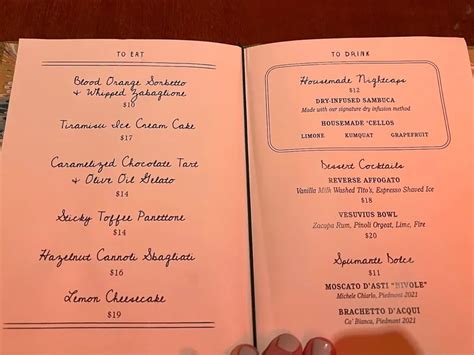 TO EAT
Blood Orange Sorbetto
& Whipped Zabaglione
$18
Tiramisu Ice Cream Cake
$17
Caramelized Chocolate Tart
& Olive Oil Gelato
$14
Sticky Toffee Panettone
$14
Hazelnut Cannoli Sbagliati
$16
Lemon Cheesecake
$19
TO DRINK
Housemade Nightcaps
$12
DRY-INFUSED SAMBUCA
Made with our signature dry infusion method
HOUSEMADE 'CELLOS
LIMONE KUMQUAT GRAPEFRUIT
Dessert Cocktails
REVERSE AFFOGATO
Vanilla Milk Washed Tito's, Espresso Shaved Ice
$18
VESUVIUS BOWL
Zacapa Rum, Pinoli Orgeat, Lime, Fire
$20
Spumante Dolce
$11
MOSCATO D'ASTI "NIVOLE"
Michele Chiarlo, Piedmont 2021
BRACHETTO D'ACQUI
Ca' Bianca, Piedmont 2021